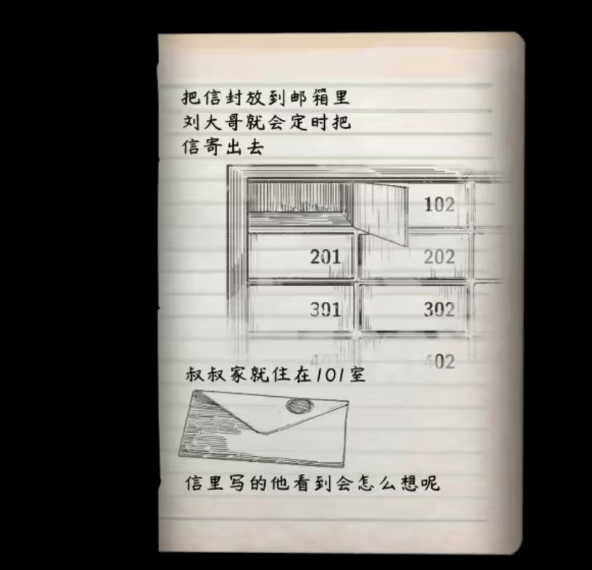 把信封放到邮箱里
刘大哥就会定时把
信寄出去
102
201 202
301 302
401 402
叔叔家就住在101室
信里写的他看到会怎么想呢